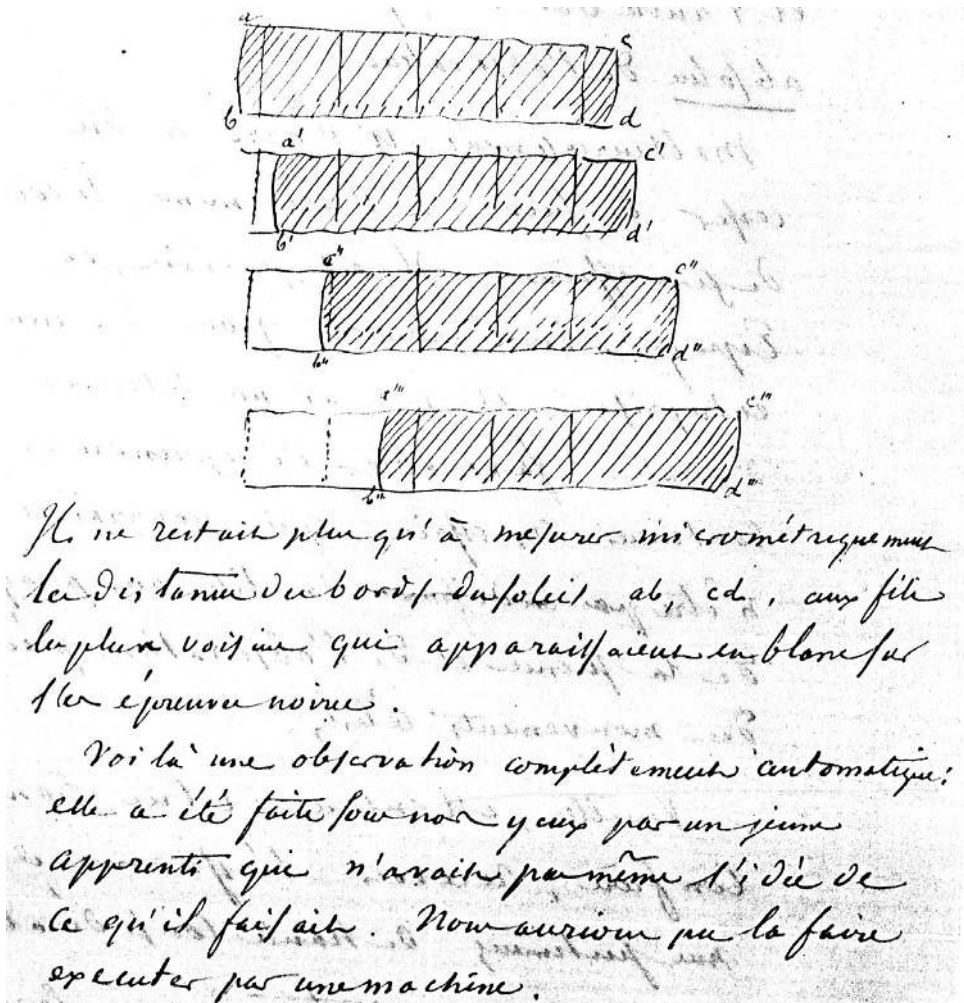 a c
b d
a' c'
b' d'
a" c"
b" d"
a''' c'''
b''' d'''
Il ne restait plus qu'à mesurer micrométriquement
les distances des bords du soleil ab, cd, aux fils
les plus voisins qui apparaissaient en blanc sur
les épreuves noires.
Voilà une observation complètement automatique:
elle a été faite sous nos yeux par un jeune
apprenti qui n'avait pas même l'idée de
ce qu'il faisait. Nous aurions pu la faire
executer par une machine.